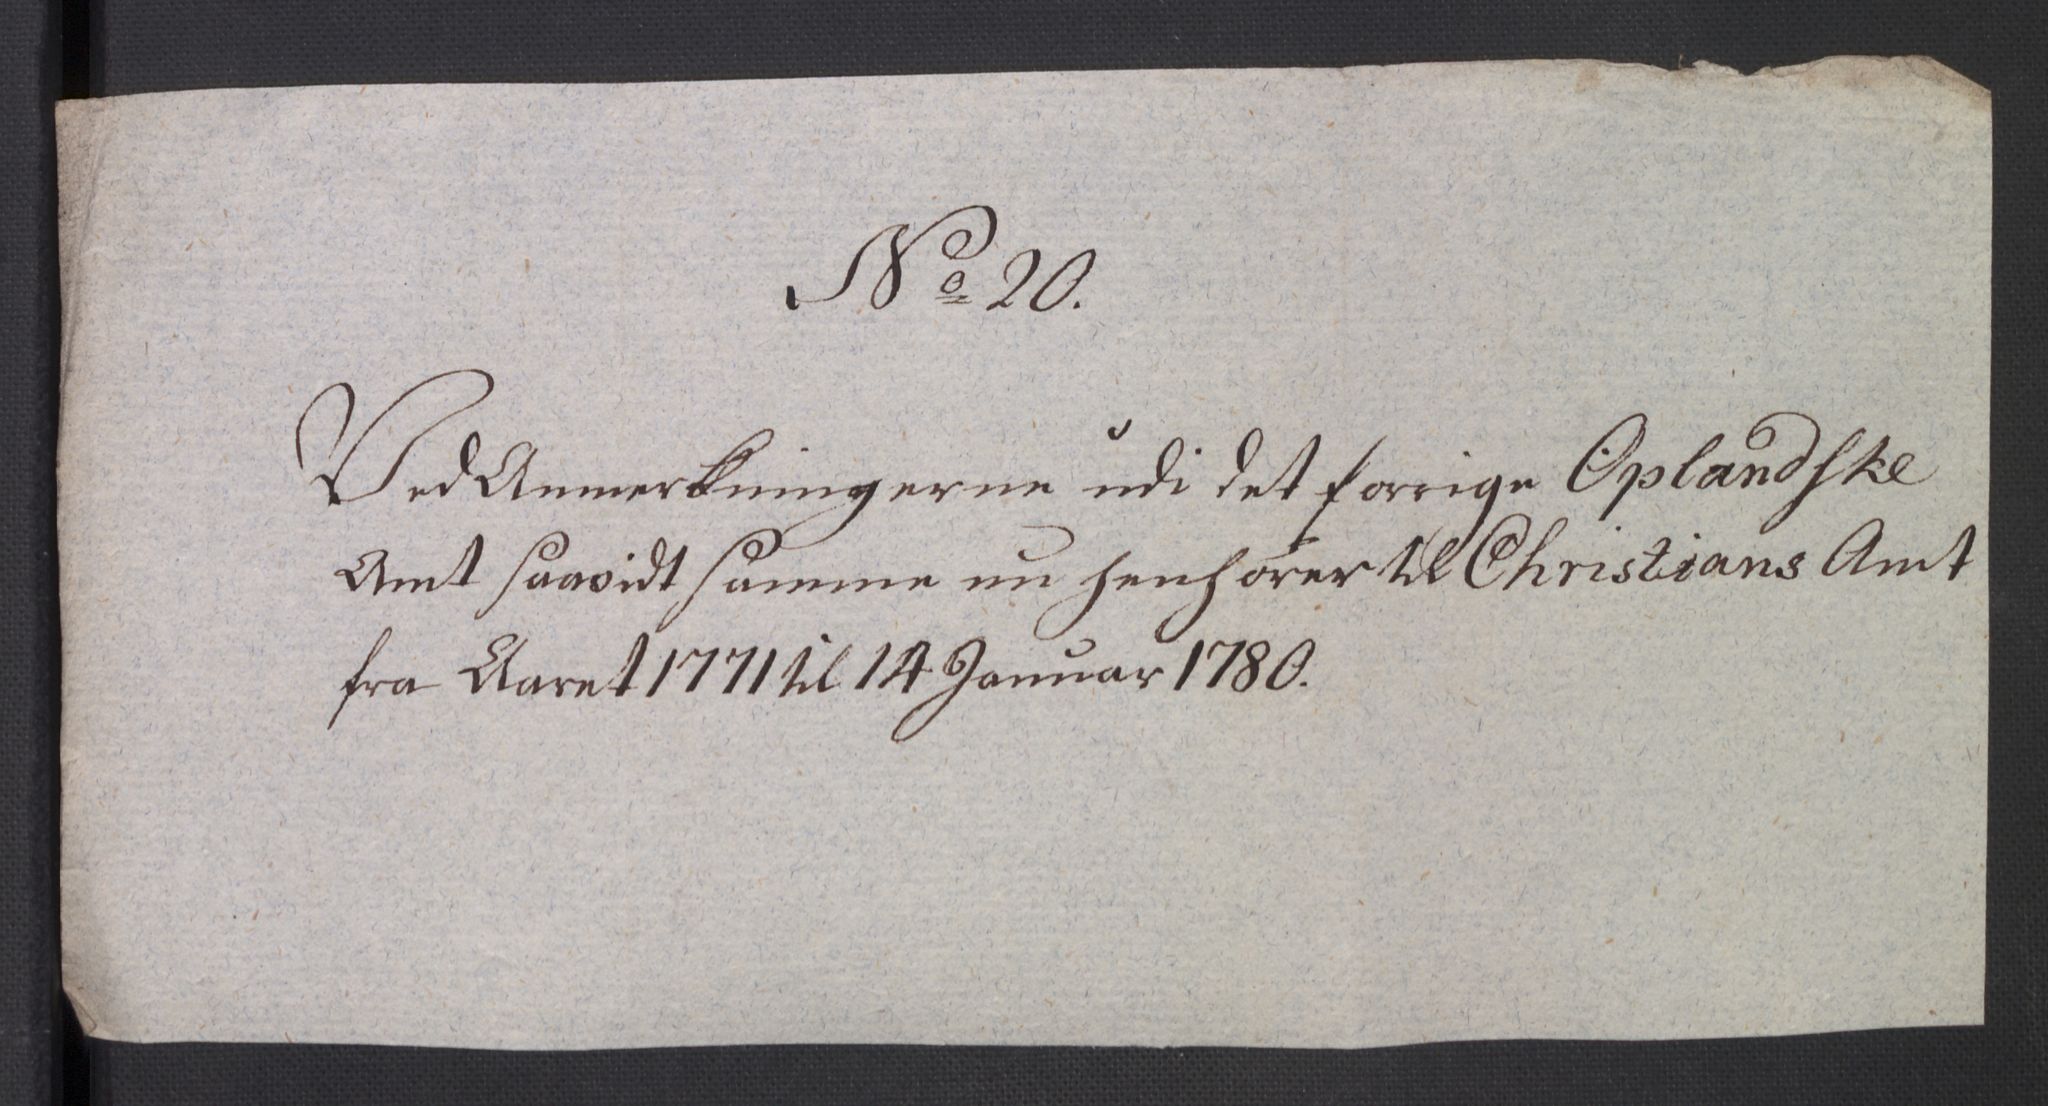 No 20.
Ved Anmerkningerne udi det forrige Oplandske
Amt saavidt samme nu henhører til Christians Amt
fra Aaret 1771 til 14 Januar 1780.